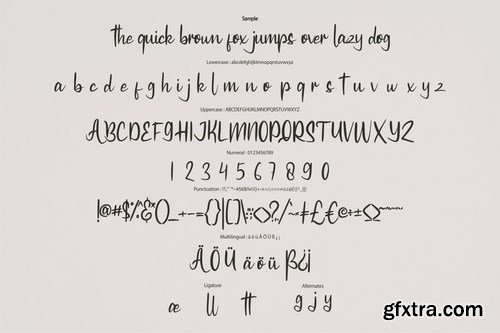 Sample
the quick brown fox jumps over lazy dog
Lowercase : abcdefghijklmnopqrstuvwxyz
a b c d e f g h i j k l m n o p q r s t u v w x y z
Uppercase : ABCDEFGHIJKLMNOPQRSTUVWXYZ
ABCDEFGHIJKLMNOPQRSTUVWXYZ
Numeral : 0123456789
1 2 3 4 5 6 7 8 9 0
Punctuation :
Multilingual : ä ö ü Ä Ö Ü ß ¿ ¡
Ä Ö Ü ä ö ü ß ¿ ¡
Ligature
Alternates
æ ll tt
g j y
gfxtra.com